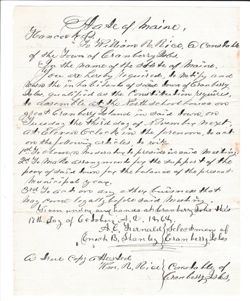 State of Maine,
Hancock SS.
To William R. Rice, a Constable
of the Town of Cranberry Isles
In the name of the State of Maine,
You are hereby required, to notify and
warn the inhabitants of said town of Cranberry
Isles, qualified as the Constitution requires,
to assemble at the School house on
great Cranberry Island in said town, on
the third day of next,
at eleven o'clock in the forenoon, to act
on the following articles to wit:
1st To choose a moderator to preside in said meeting.
2d To make arrangements for the support of the
poor of said town for the balance of the present
Municipal year.
3rd To act on any other business that
may come legally before said meeting.
Given under our hands at Cranberry Isles this
day of October, A.D. 1864.
Fernald Selectmen of
Enoch B. Stanley Cranberry Isles
A true Copy Attested
Wm. R. Rice Constable of
Cranberry Isles.